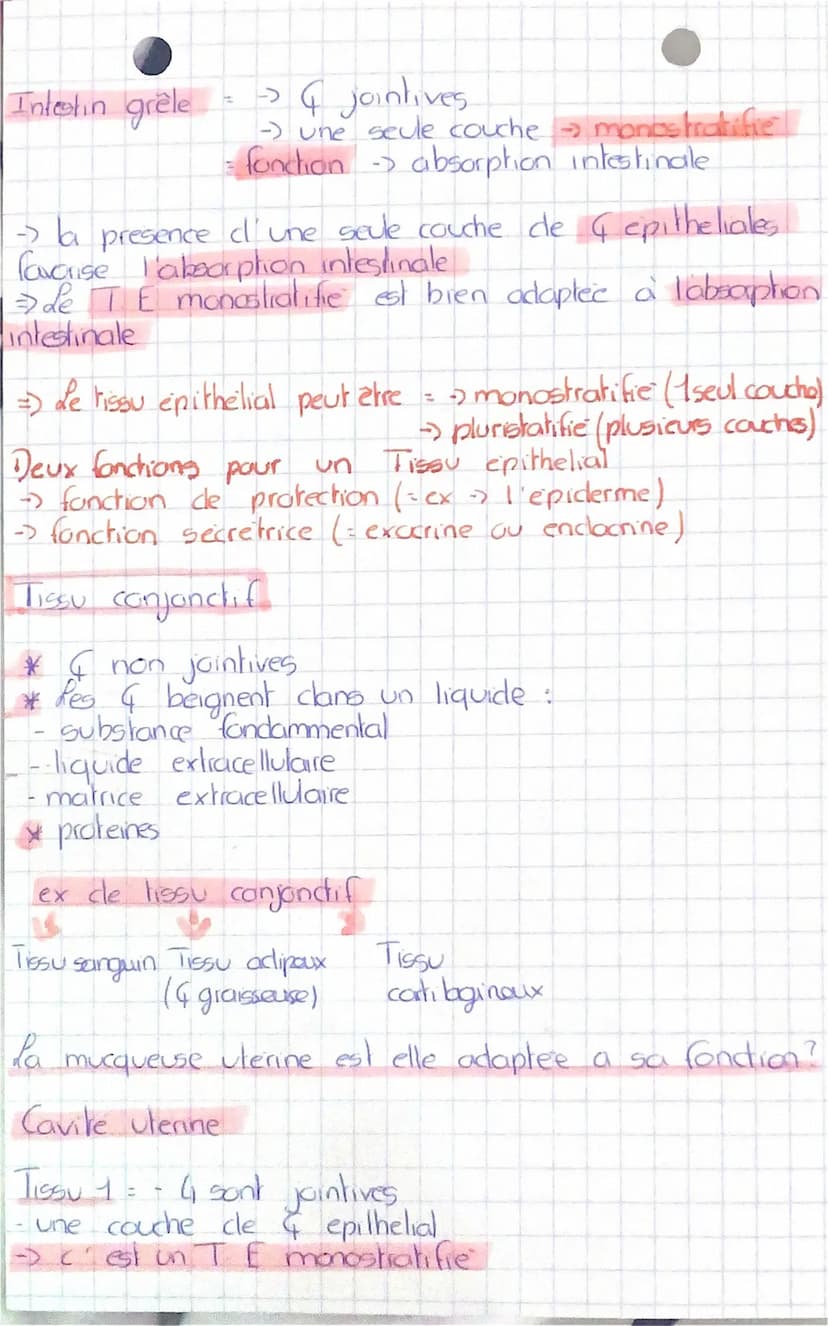 Intestin grêle = -> ₵ jointives
-> une seule couche -> monostratifié
= fonction -> absorption intestinale
-> la presence d'une seule couche de ₵ epitheliales
favorise l'absorption intestinale
=> Le T E monostratifié est bien adaptée à l'absorption
intestinale
=> Le tissu épithélial peut être = -> monostratifié (1 seul couche)
-> pluristatifié (plusieurs couches)
Deux fonctions pour un Tissu epithelial
-> fonction de protection (= ex -> l'épiderme)
-> fonction sécretrice (= exocrine ou endocrine)
Tissu conjonctif
* ₵ non jointives
* Les ₵ beignent dans un liquide :
- substance fondammental
- liquide extracellulaire
- matrice extracellulaire
* proteines
ex de tissu conjonctif
Tissu sanguin Tissu adipeux Tissu
(₵ graisseuse) cartilagineux
La mucqueuse uterine est elle adaptée a sa fonction ?
Cavité uterine
Tissu 1 = - ₵ sont jointives
- une couche de ₵ epithelial
-> c'est un T E monostratifié